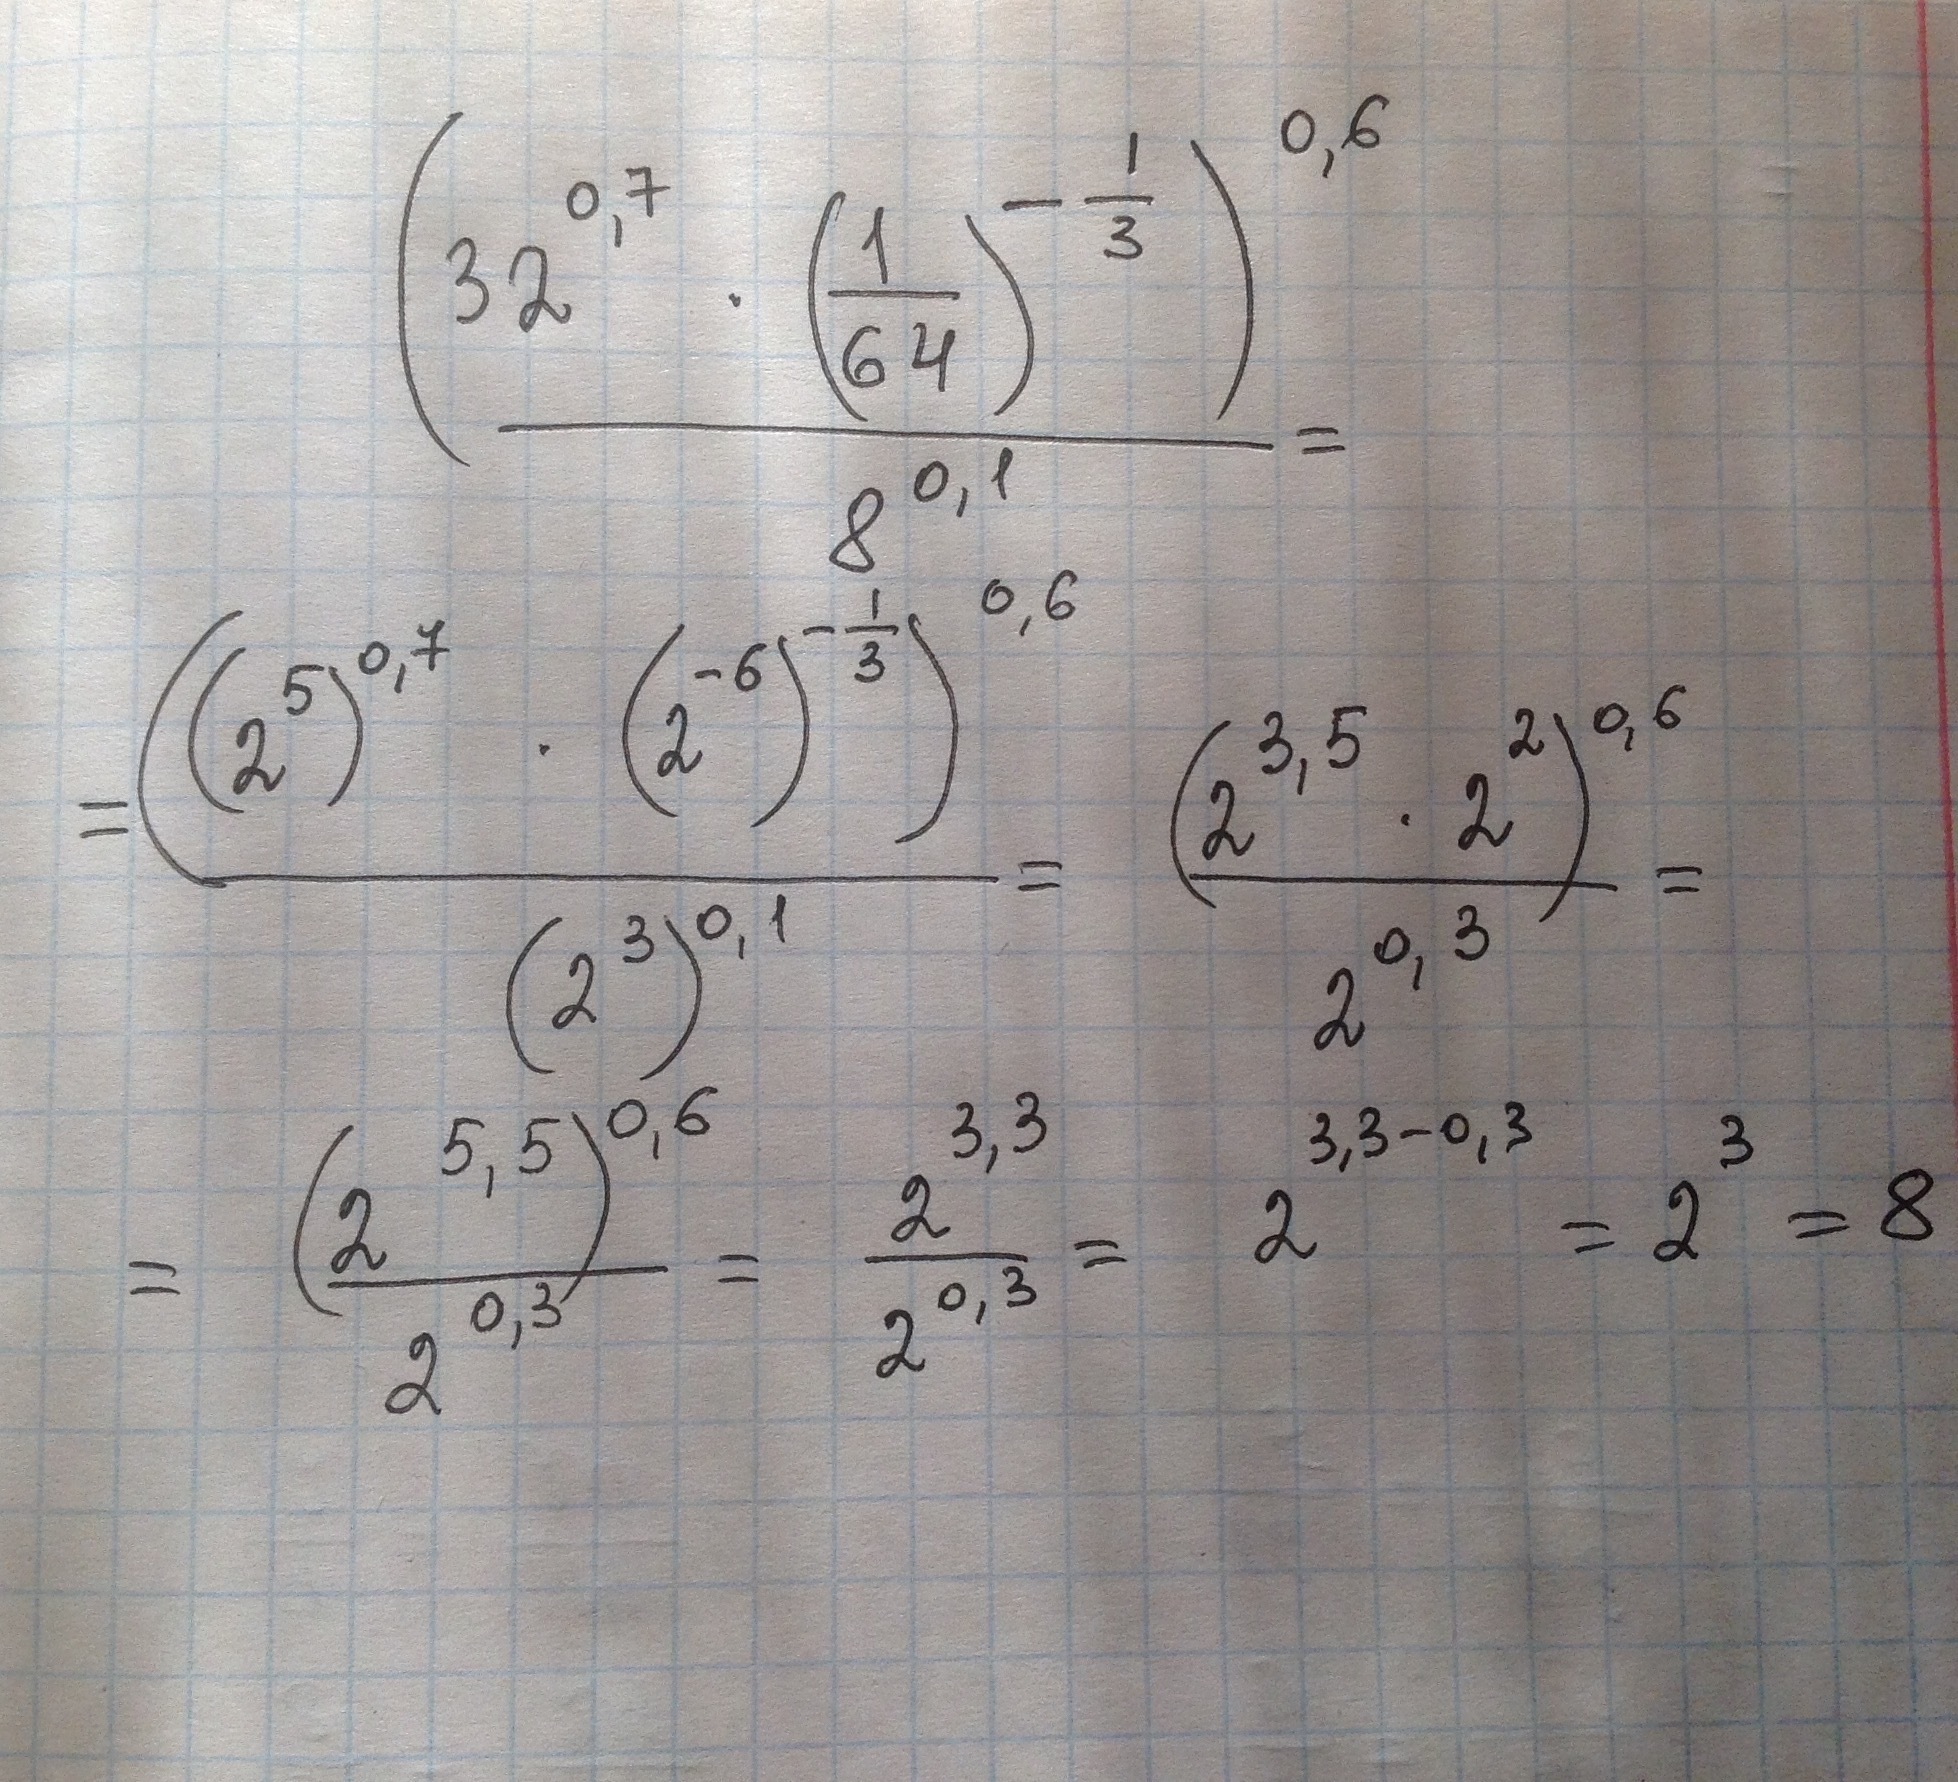 (32^0,7 · (1/64)^-1/3)^0,6 / 8^0,1 =
= ((2^5)^0,7 · (2^-6)^-1/3)^0,6 / (2^3)^0,1 = (2^3,5 · 2^2)^0,6 / 2^0,3 =
= (2^5,5)^0,6 / 2^0,3 = 2^3,3 / 2^0,3 = 2^3,3-0,3 = 2^3 = 8